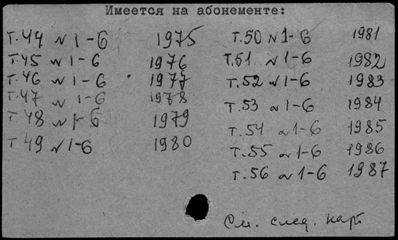 Имеется на абонементе:
Т.44 № 1-6 1975
Т.45 № 1-6 1976
Т.46 № 1-6 1977
Т.47 № 1-6 1978
Т.48 № 1-6 1979
Т.49 № 1-6 1980
Т.50 № 1-6 1981
Т.51 № 1-6 1982
Т.52 № 1-6 1983
Т.53 № 1-6 1984
Т.54 № 1-6 1985
Т.55 № 1-6 1986
Т.56 № 1-6 1987
См. след. карт